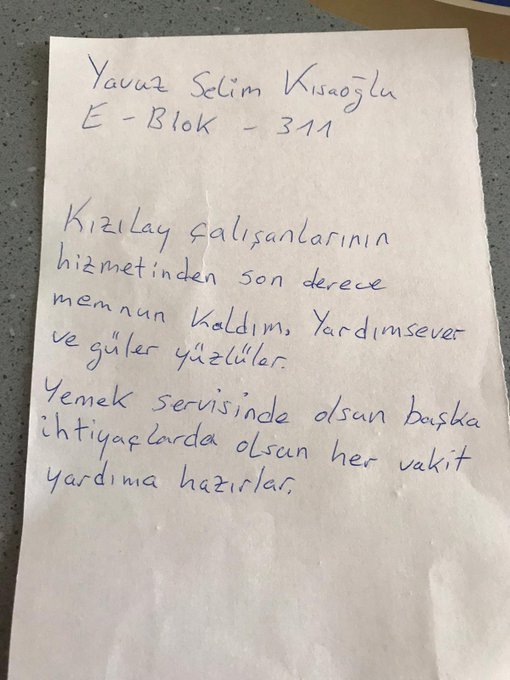 Yavuz Selim Kısaoğlu
E - Blok - 311
Kızılay çalışanlarının
hizmetinden son derece
memnun kaldım. Yardımsever
ve güler yüzlüler.
Yemek servisinde olsun başka
ihtiyaçlarda olsun her vakit
yardıma hazırlar.